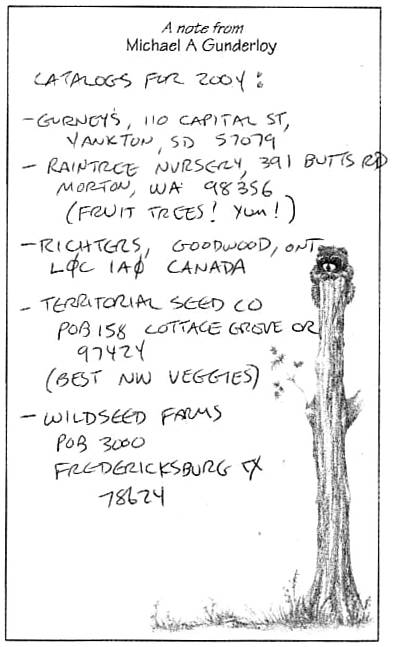 A note from
Michael A Gunderloy
CATALOGS FOR 2004:
- GURNEY'S, 110 CAPITAL ST,
YANKTON, SD 57079
- RAINTREE NURSERY, 391 BUTTS RD
MORTON, WA 98356
(FRUIT TREES! YUM!)
- RICHTERS, GOODWOOD, ONT
LØC 1AØ CANADA
- TERRITORIAL SEED CO
POB 158 COTTAGE GROVE OR
97424
(BEST NW VEGGIES)
- WILDSEED FARMS
POB 3000
FREDERICKSBURG TX
78624